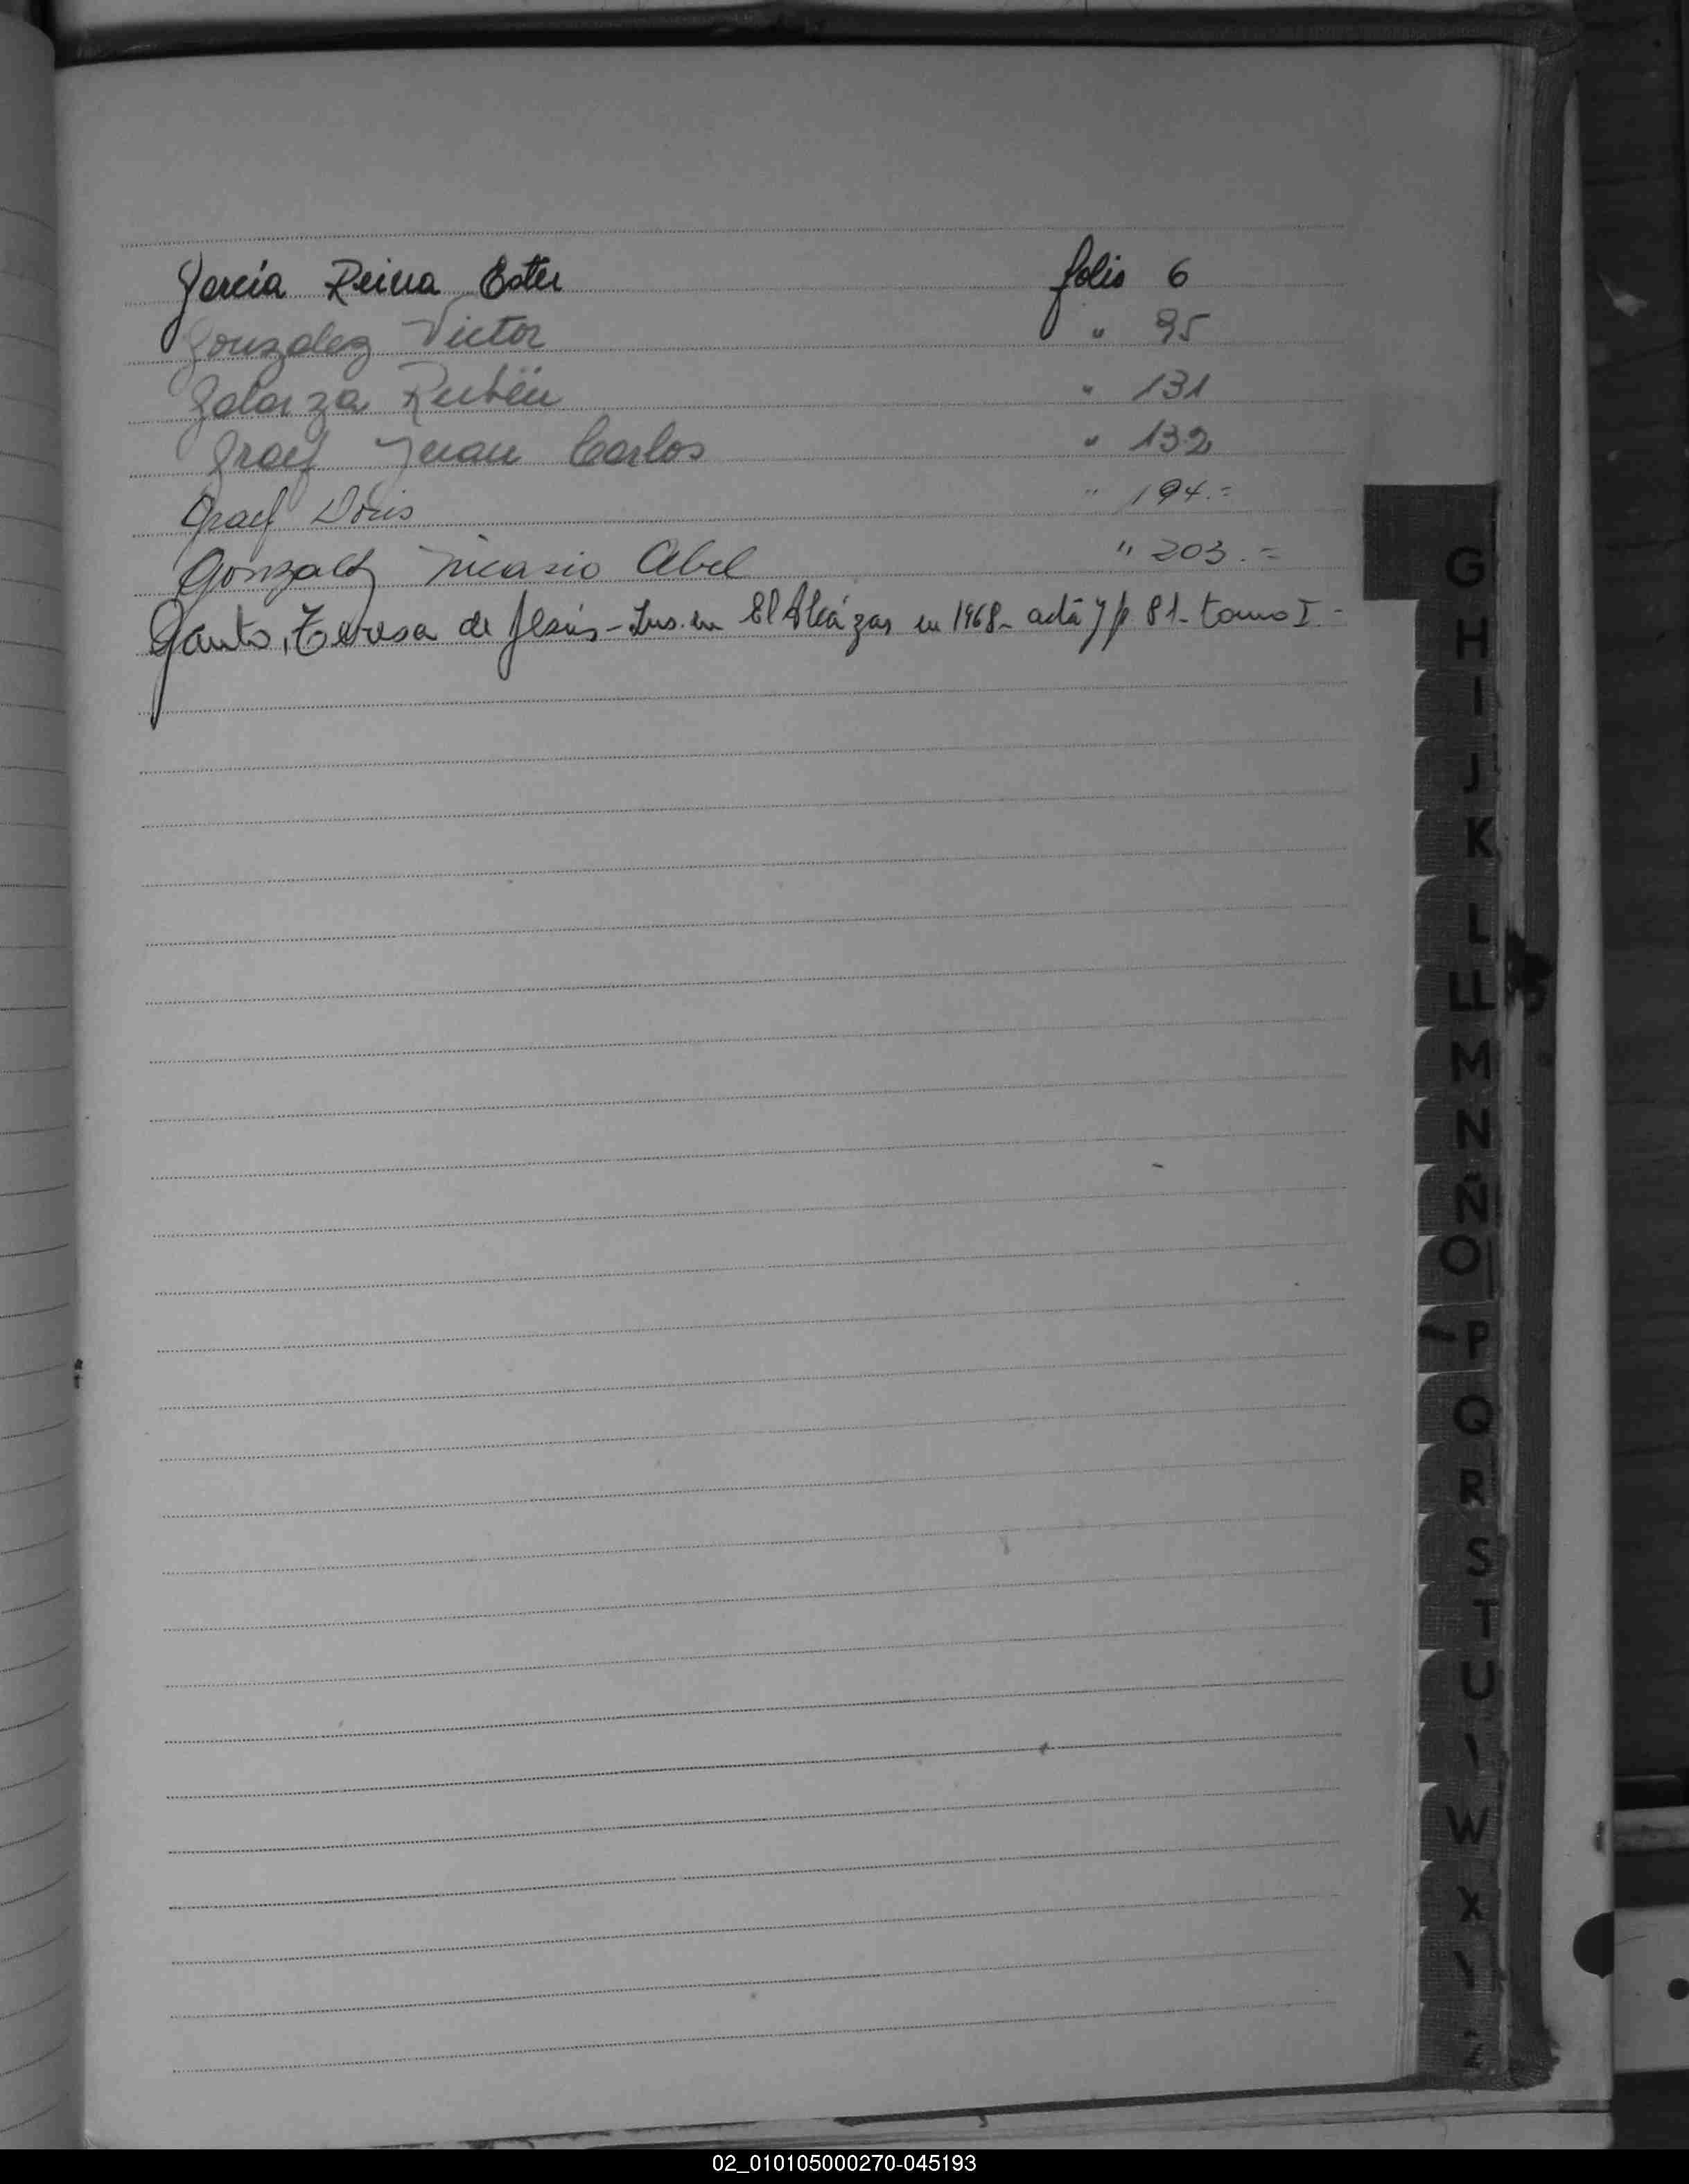 García Reina Ester folio 6
Gonzalez Victor " 95
Galarza Rubén " 131
Graef Juan Carlos " 132
Graef Doris " 194.=
Gonzalez Nicasio Abel " 203.=
Gauto, Teresa de Jesús - Ins. en El Alcázar en 1968 - acta 7 f. 81 - tomo I -
G
H
I
J
K
L
LL
M
N
Ñ
O
P
Q
R
S
T
U
W
X
Z
02_010105000270-045193